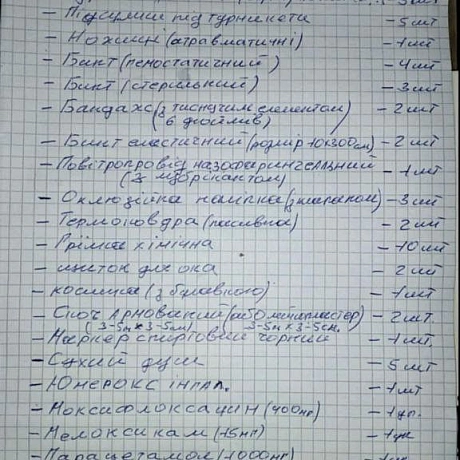 – Підсумки під турнікети – 5 шт
– Ножиці (атравматичні) – 1 шт
– Бинт (гемостатичний) – 4 шт
– Бинт (стерильний) – 3 шт
– Бандаж (з тиснучим елементом – 2 шт
6 дюймів)
– Бинт еластичний (розмір 10х300см) – 2 шт
– Повітропровід назофарингеальний – 1 шт
(з лубрікантом)
– Оклюзійна наліпка (з клапаном) – 3 шт
– Термоковдра (пасивна) – 2 шт
– Грілка хімічна – 10 шт
– щиток для ока – 2 шт
– косинка (з булавкою) – 1 шт
(або лейкопластер) – 2 шт.
(3-5м х 3-5см) 3-5м х 3-5см.
– Маркер спиртовий чорний – 1 шт.
– Сухий душ – 5 шт
– – 1 шт
– Моксифлоксацин (400мг) – 1 уп.
– Мелоксикам (15мг) – 1 уп
– Парацетамол (1000мг) – 1 уп